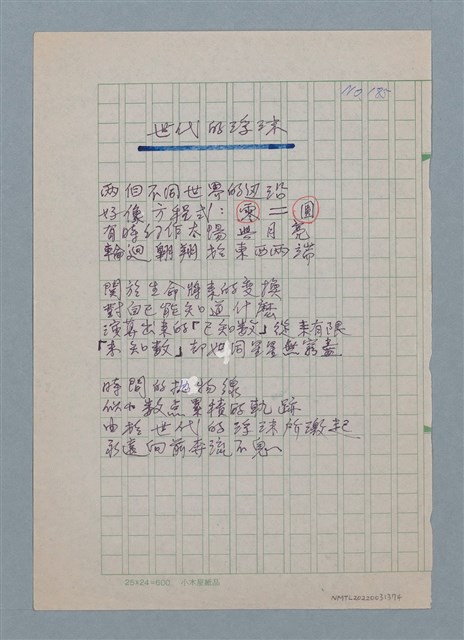 No. 185
世代的浮球
兩個不同世界的切沿
好像方程式：零＝圓
有時幻作太陽與月亮
輪迴翱翔於東西兩端
關於生命將來的變換
對自己能知道什麼
演算出來的「已知數」從來有限
「未知數」却如同星星無窮盡
時間的拋物線
似小數点累積的軌跡
由於世代的浮球所激起
永遠向前奔流不息
25×24=600 小木屋紙品
NMTL20220031374